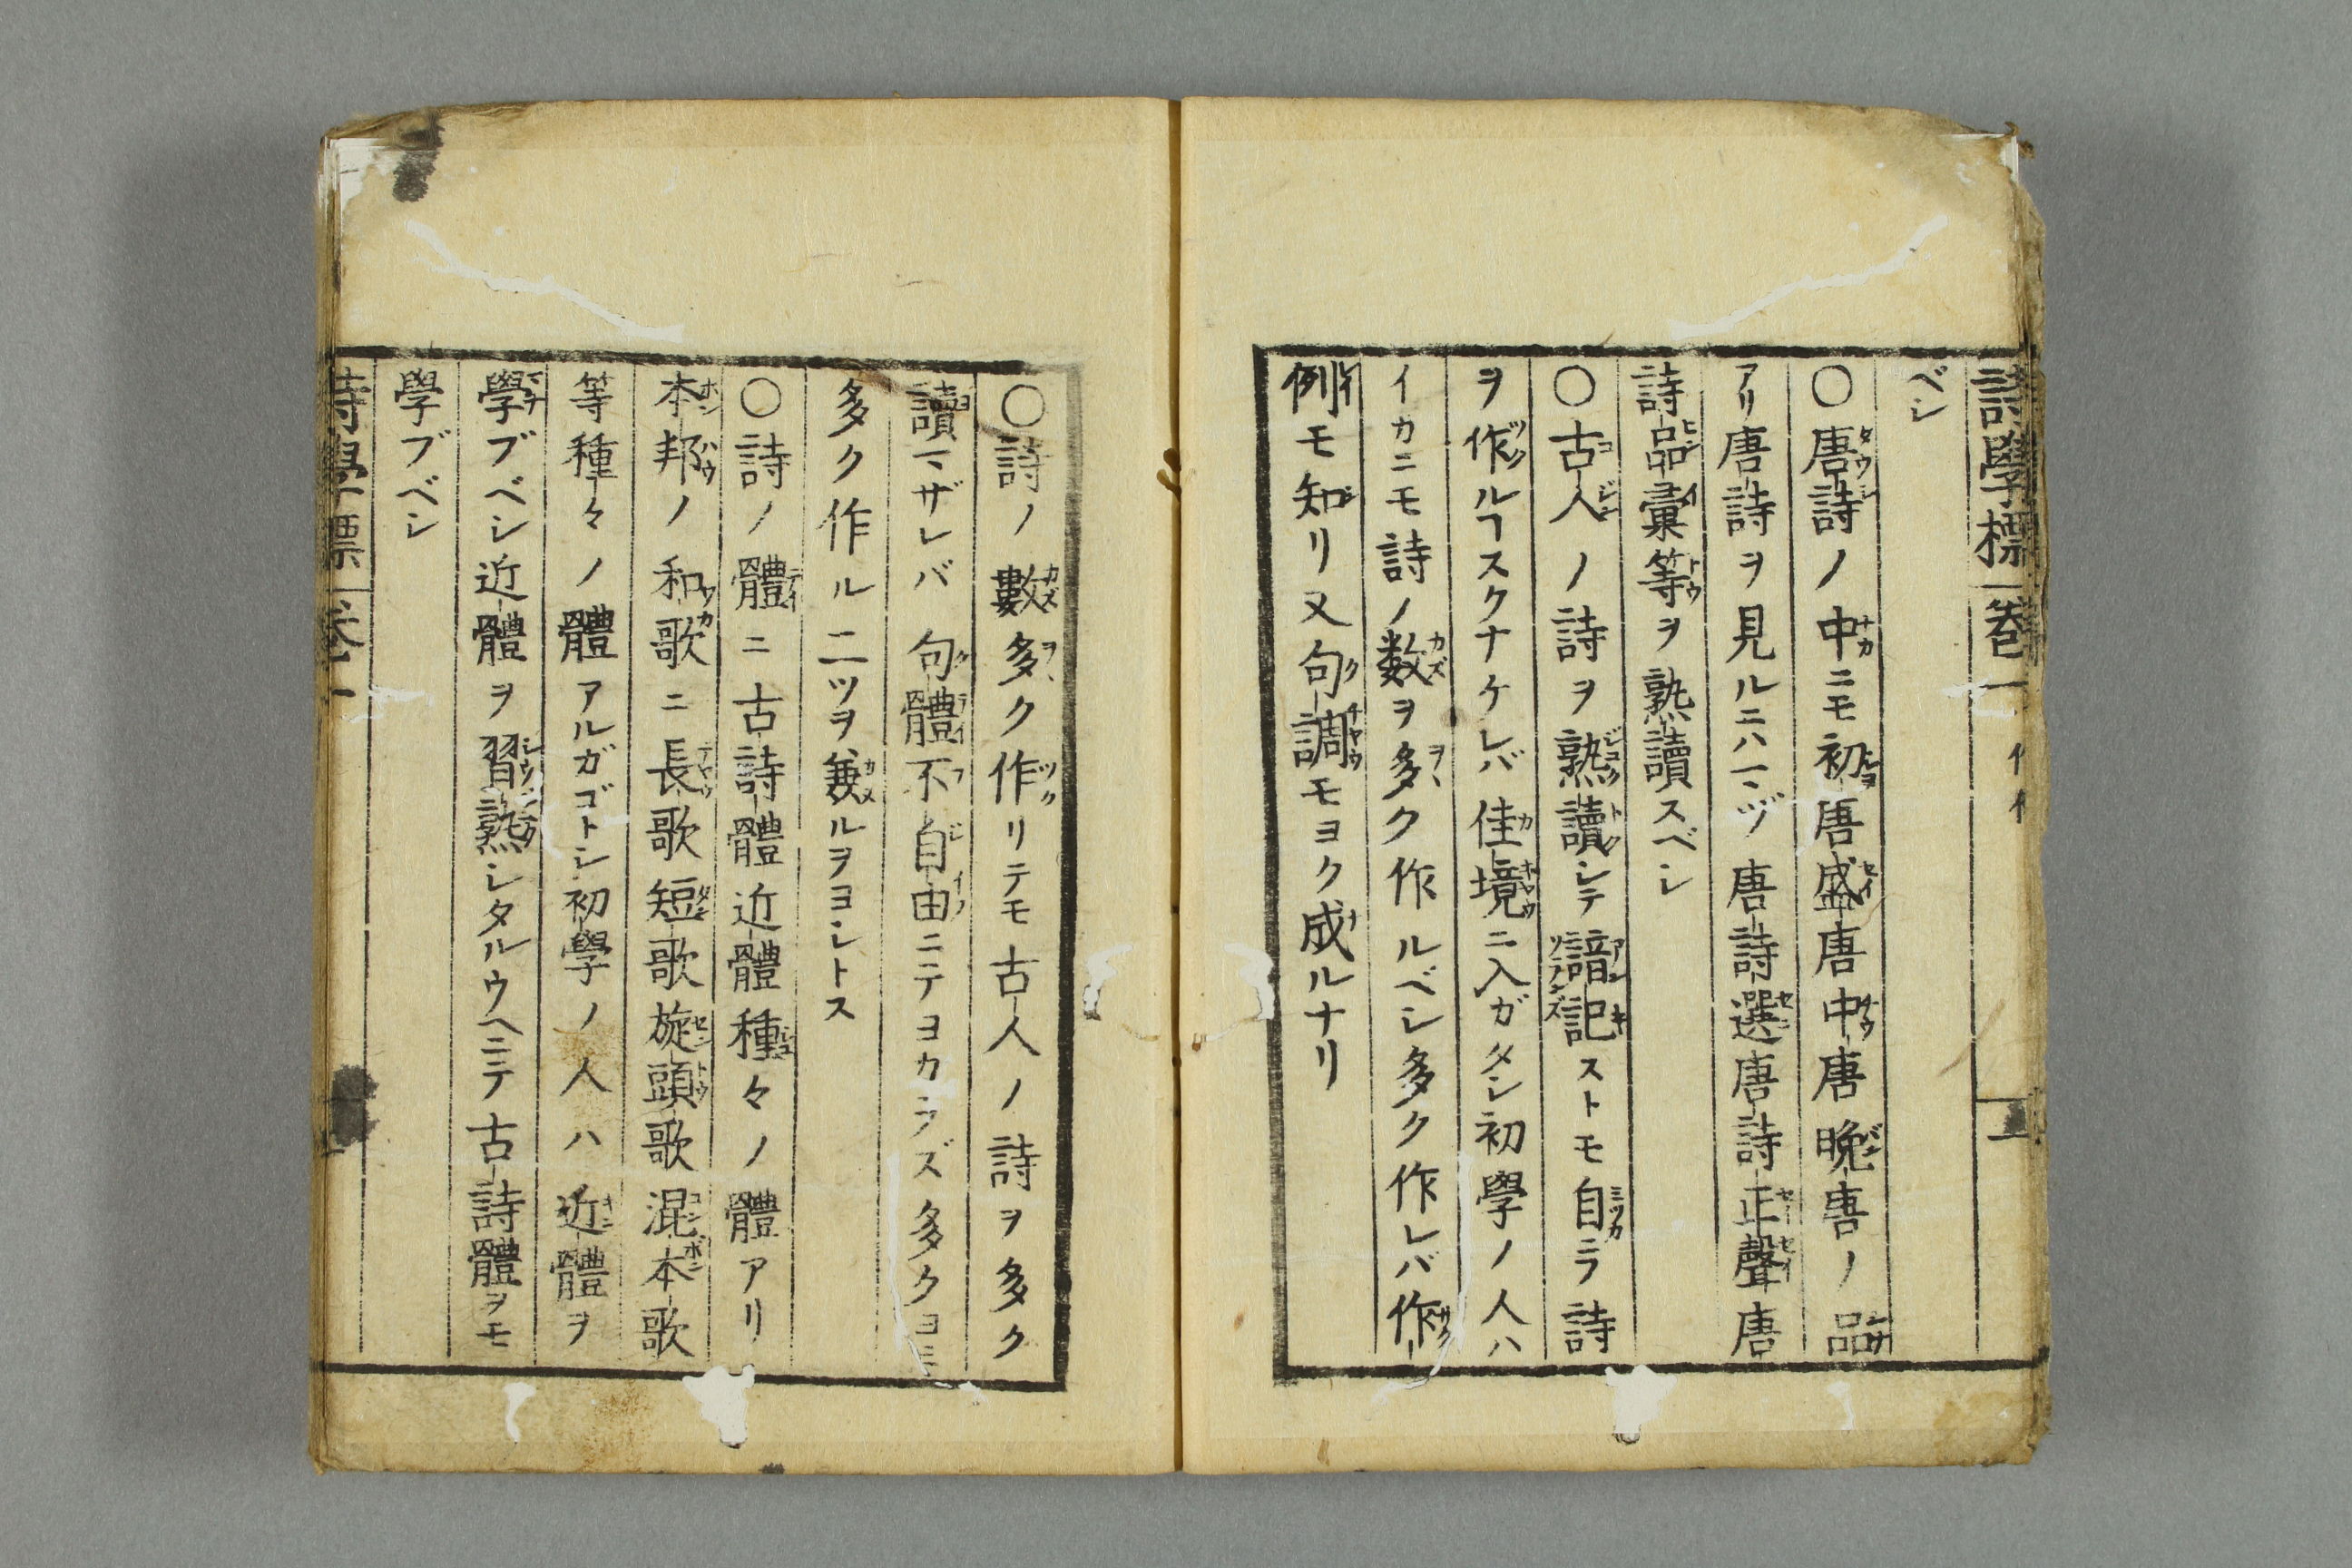 詩學標 卷一
ベシ
○唐詩ノ中ニモ初唐盛唐中唐晩唐ノ品
アリ唐詩ヲ見ルニハマヅ唐詩選唐詩正聲唐
詩品彙等ヲ熟讀スベシ
○古人ノ詩ヲ熟讀シテ諳記ストモ自ラ詩
ヲ作ルヿスクナケレバ佳境ニ入ガタシ初學ノ人ハ
イカニモ詩ノ数ヲ多ク作ルベシ多ク作レバ作
例モ知リ又句調モヨク成ルナリ
○詩ノ數多ク作リテモ古人ノ詩ヲ多ク
讀マザレバ句體不自由ニテヨカラズ多クヨミ
多ク作ル二ツヲ兼ルヲヨシトス
○詩ノ體ニ古詩體近體種々ノ體アリ
本邦ノ和歌ニ長歌短歌旋頭歌混本歌
等種々ノ體アルガゴトシ初學ノ人ハ近體ヲ
學ブベシ近體ヲ習熟シタルウヘニテ古詩體ヲモ
學ブベシ
詩學標 卷一